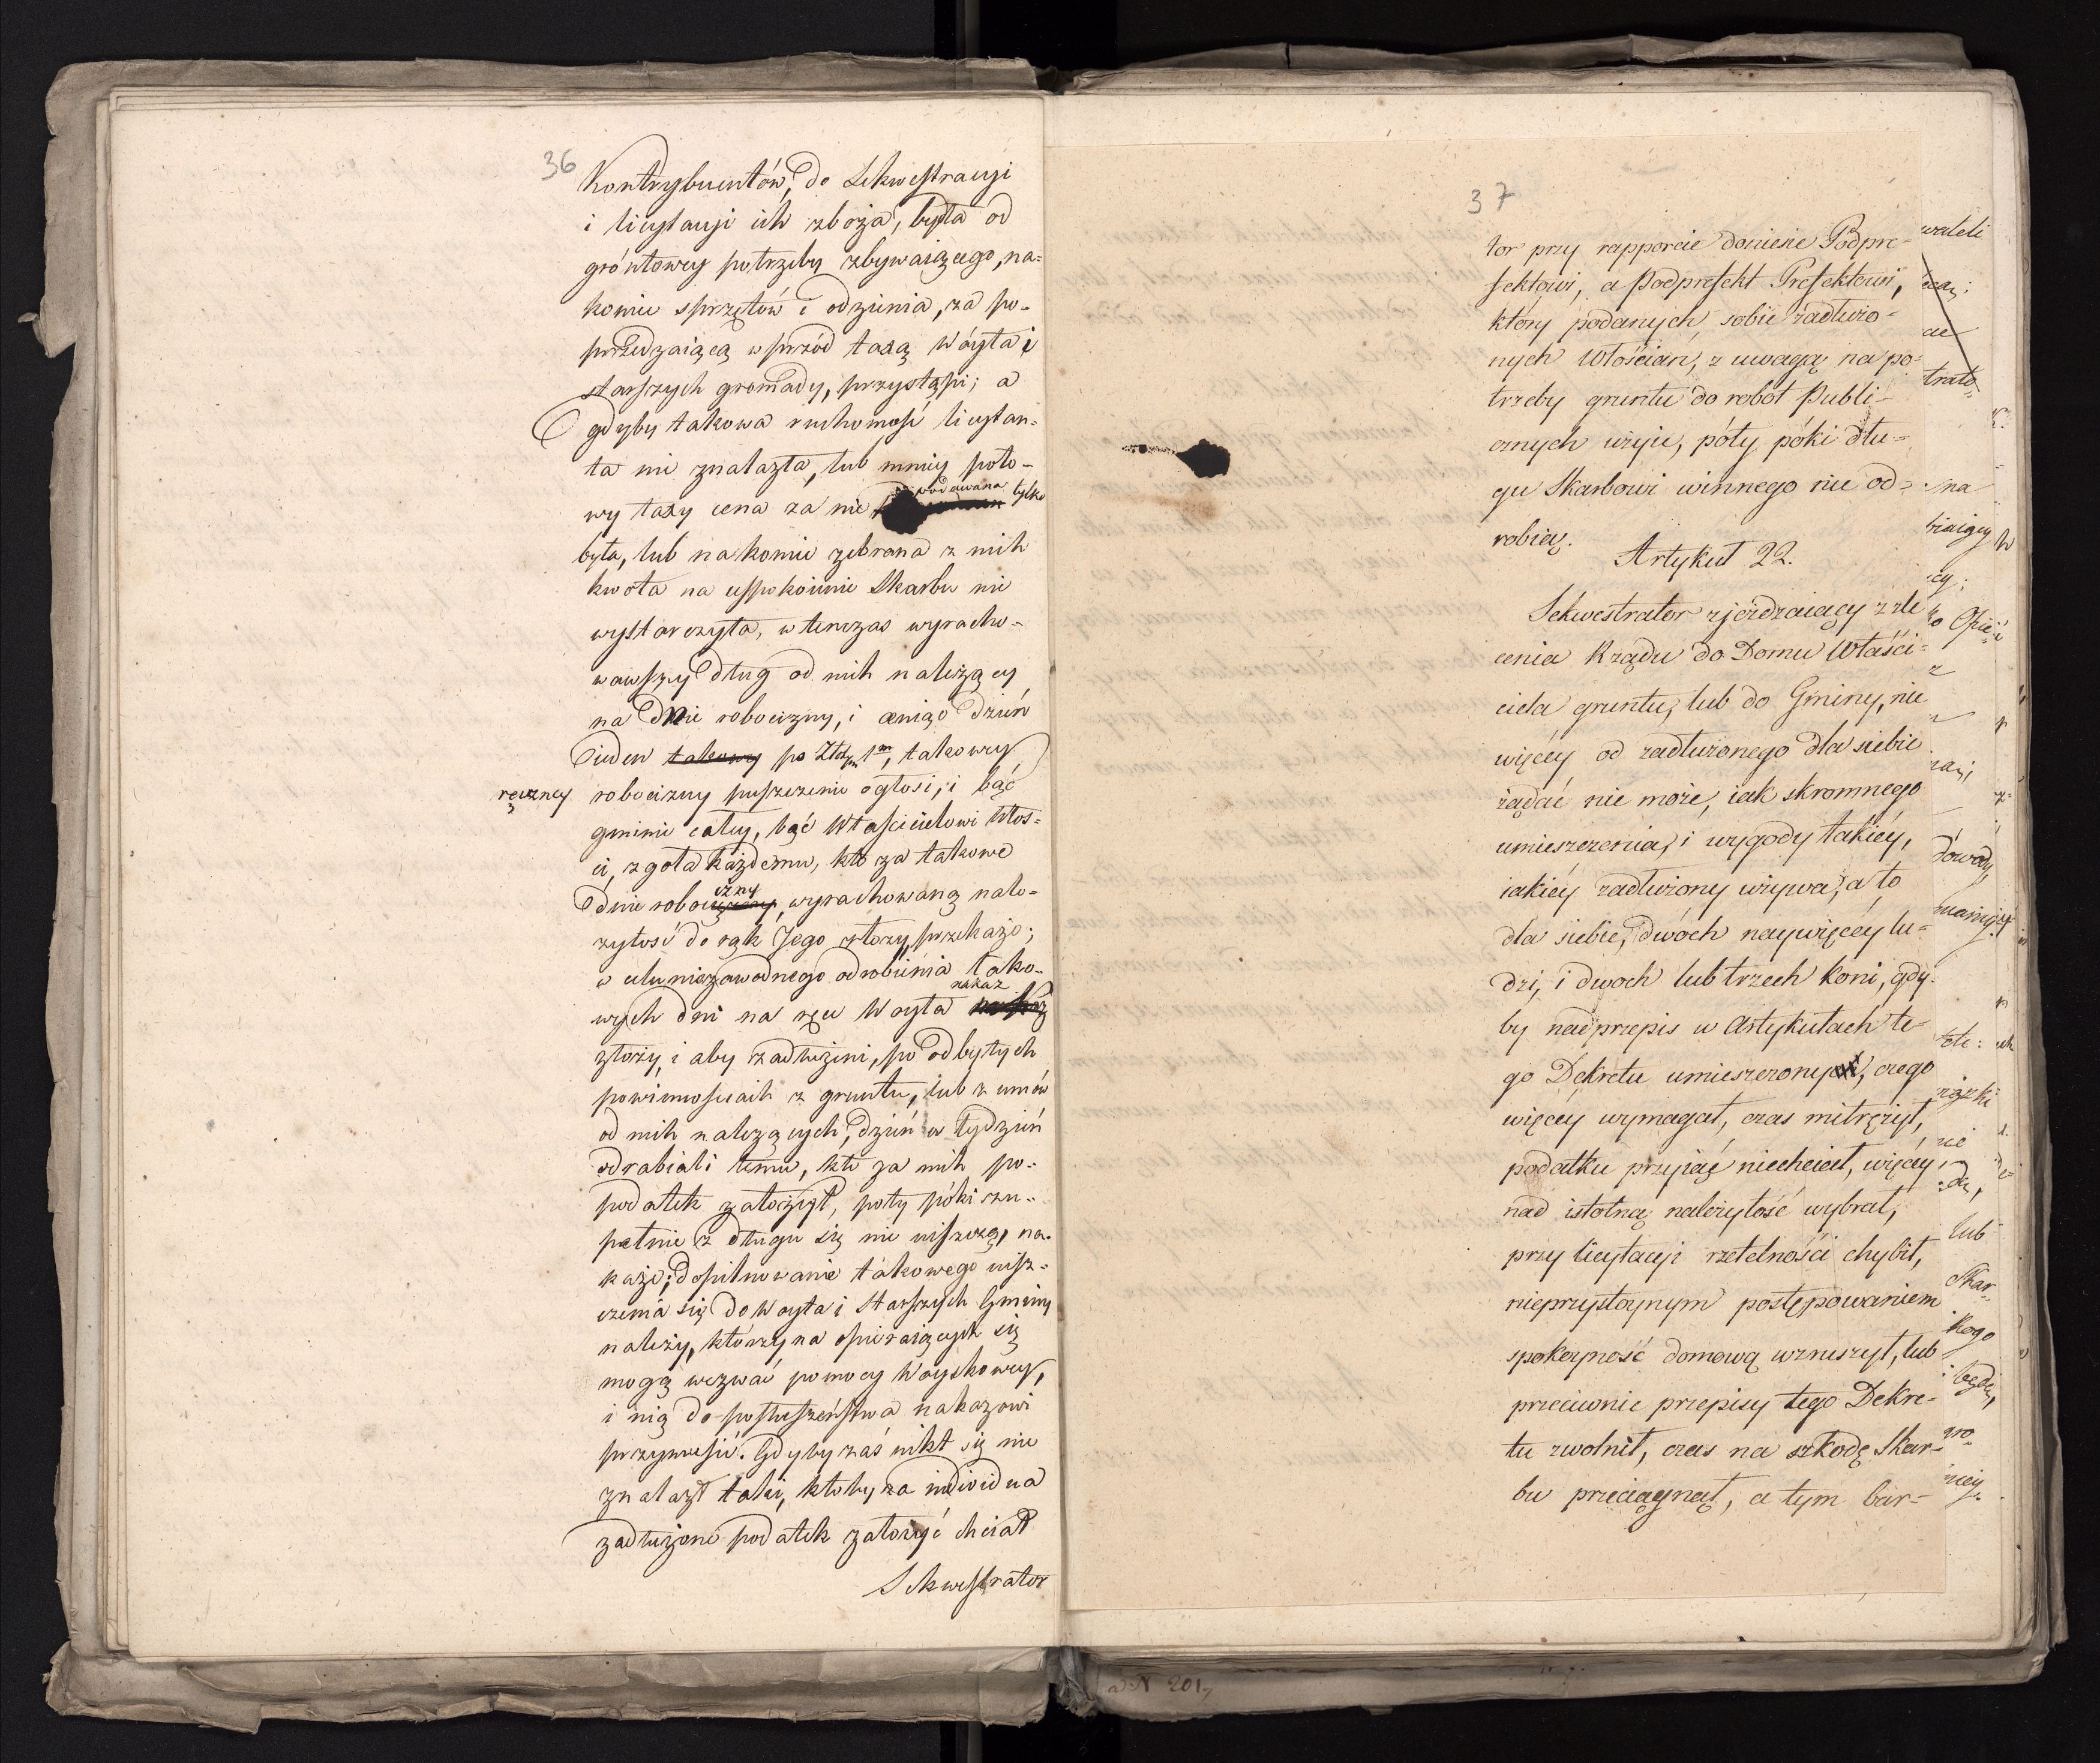 36
Kontrybuentów, do Sekwestracyi
i licytacyi ich zboża, bydła od
gróntowey potrzeby zbywaiącego, na-
koniec sprzętów i odzienia, za po-
przedzaiącą wprzód taxą Wóyta i
starszych gromady, przystąpi; a
gdyby takowa ruchomość licytan-
ta nie znalazła, lub mniey poło-
wy taxy cena za nie podawana tylko
była, lub nakoniec zebrana z nich
kwota na uspokoienie Skarbu nie
wystarczyła, wtenczas wyracho-
wawszy Dług od nich należący
na Dnie robocizny, i ceniąc Dzień
ieden takowy po Złłp 1m, takowey
ręczney robocizny puszczenie ogłosi, i bąć
gminie całey, bąć Właścicielowi Włos-
ci, zgoła każdemu, kto za takowe
Dnie robocizny, wyrachowaną nale-
zytość do rąk Jego złozy, przekaże;
w celu niezawodnego odrobienia tako-
wych dni na ręce Woyta nakaz
złoży, i aby zadłużeni, po odbytych
powinnosciach z gruntu, lub z umów
od nich należących, dzień w tydzień
odrabiali temu, kto za nich po-
podatek założył, poty póki zu-
pełnie z długu się nie uiszczą, na-
każe; dopilnowanie takowego uisz-
czenia się do Woyta i Starszych Gminy
należy, którzy na opieraiących się
mogą wezwać pomocy Woyskowey,
i nią do posłuszeństwa nakazowi
przymusić. Gdyby zaś nikt się nie
znalazł taki, ktoby za individua
zadłużone podatek założyć chciał
Sekwestrator
37
tor przy rapporcie doniesie Podpre-
fektowi, a Podprefekt Prefektowi,
który podanych sobie zadłużo-
nych Włościan, z uwagą na po-
trzeby gruntu do robot Publi-
cznych użyie, póty póki dłu-
gu Skarbowi winnego nie od-
robią.
Artykuł 22.
Sekwestrator zjeżdzaiący z zle
cenia Rządu do Domu Właści-
ciela gruntu, lub do Gminy, nie
więcéy od zadłużonego dla siebie
żądać nie może, iak skromnego
umieszczenia, i wygody takiéy,
iakiéy zadłużony używa, a to
dla siebie, dwóch naywięcéy lu-
dzi, i dwoch lub trzech koni, gdy-
by nad przepis w Artykułach te-
go Dekretu umieszczony, czego
więcéy wymagał, czas mitrężył,
podatku przyiąć niechciał, więcéy
nad istotną należytość wybrał,
przy licytacyi rzetelności chybił,
nieprzystoynym postępowaniem
spokoyność domową wzruszył, lub
przeciwnie przepisy tego Dekre-
tu zwolnił, czas na szkodę Skar-
bu przeciągnął, a tym bar-
wateli
trato
na
Opie
dowody
lub
Skar-
kogo
będzie,
a N 201,